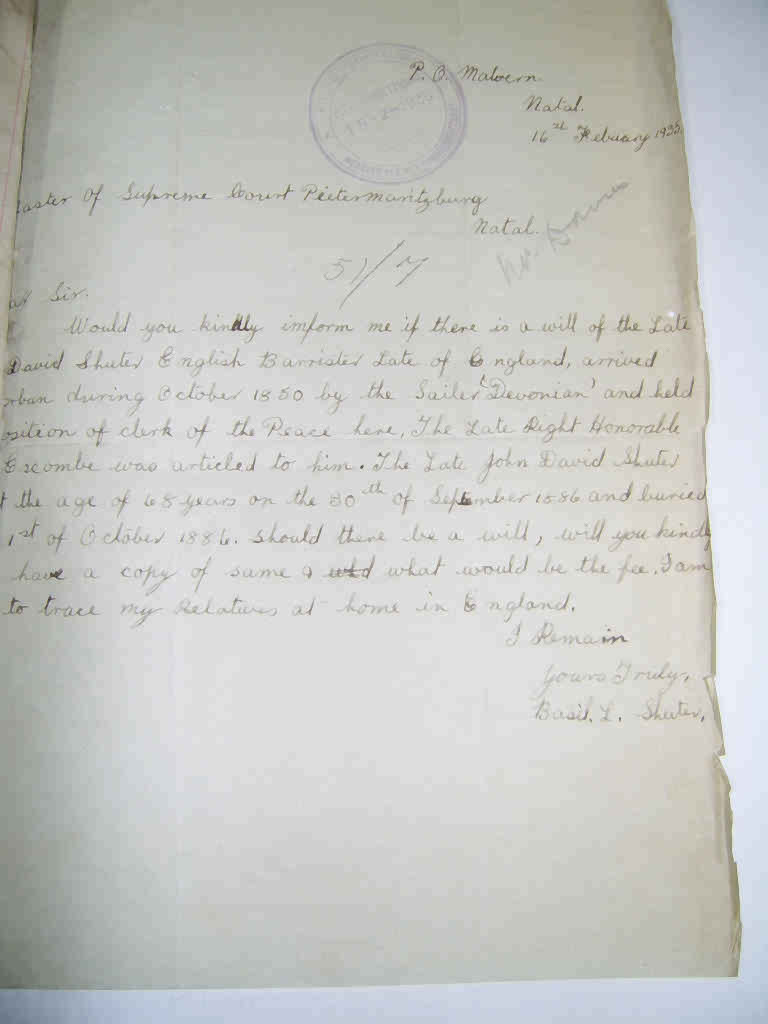 P. O. Malvern
Natal.
16st Febuary 1933.
aster Of Supreme Court Pietermaritzburg
Natal.
51/7
ar Sir.
Would you kindly imform me if there is a will of the Late
David Shuter English Barrister Late of England, arrived
rban during October 1850 by the Sailer 'Devonian' and held
osition of clerk of the Peace here, The Late Right Honorable
Escombe was articled to him. The Late John David Shuter
t the age of 68 years on the 30th of September 1886 and buried
1st of October 1886. Should there be a will, will you kindly
have a copy of same & what would be the fee. I am
to trace my Relatives at home in England.
I Remain
Yours Truly,
Basil. L. Shuter.